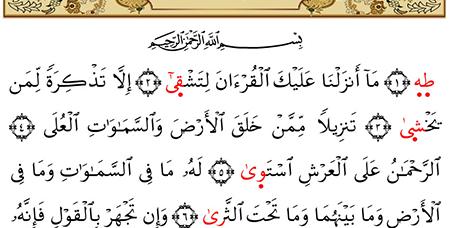 بِسْمِ اللَّهِ الرَّحْمَٰنِ الرَّحِيمِ
طه ﴿١﴾ مَآ أَنزَلْنَا عَلَيْكَ الْقُرْءَانَ لِتَشْقَىٰٓ ﴿٢﴾ إِلَّا تَذْكِرَةً لِّمَن
يَخْشَىٰ ﴿٣﴾ تَنزِيلًا مِّمَّنْ خَلَقَ الْأَرْضَ وَالسَّمَٰوَٰتِ الْعُلَى ﴿٤﴾
الرَّحْمَٰنُ عَلَى الْعَرْشِ اسْتَوَىٰ ﴿٥﴾ لَهُۥ مَا فِى السَّمَٰوَٰتِ وَمَا فِى
الْأَرْضِ وَمَا بَيْنَهُمَا وَمَا تَحْتَ الثَّرَىٰ ﴿٦﴾ وَإِن تَجْهَرْ بِالْقَوْلِ فَإِنَّهُۥ